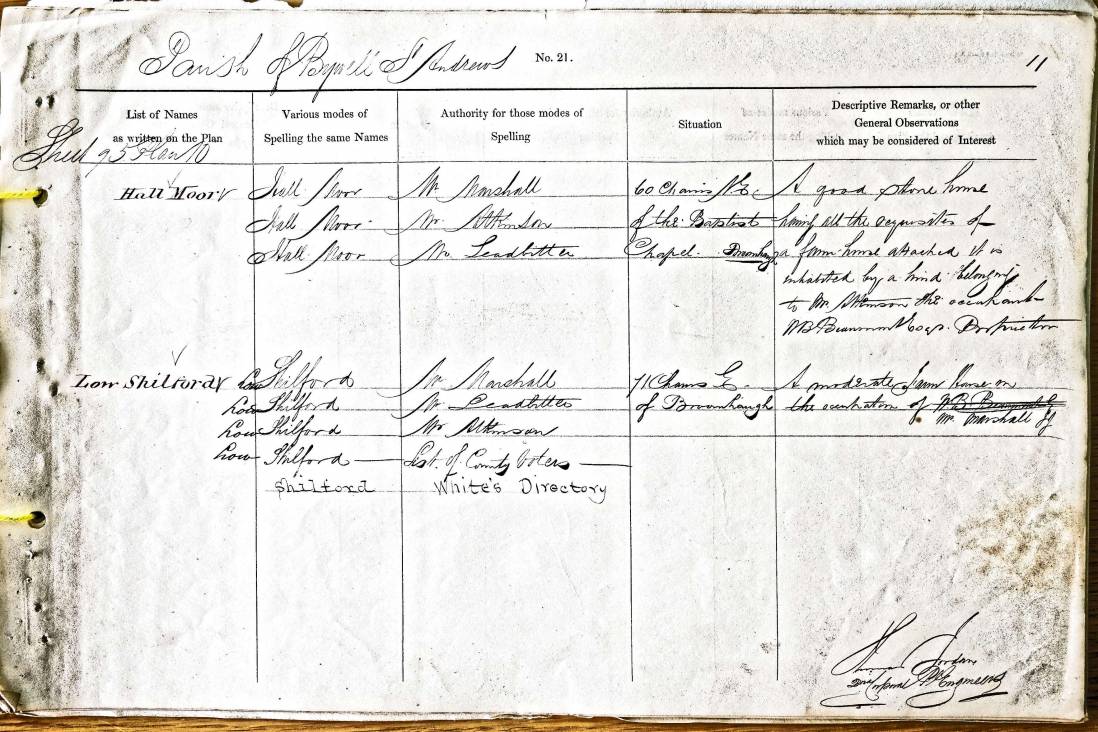 Parish of Bywell St Andrews No. 21. 11
List of Names
as written on the Plan
Various modes of
Spelling the same Names
Authority for those modes of
Spelling
Situation
Descriptive Remarks, or other
General Observations
which may be considered of Interest
Sheet 95 Plan 10
Hall Moor Hall Moor Mr Marshall 60 Chains N.E. A good stone house
Hall Moor Mr Atkinson of the Baptist having all the requisites of
Hall Moor Mr Leadbitter Chapel. Broomhaugh a farm house attached it is
inhabited by a hind belonging
to Mr Atkinson the occupant
WB Beaumont Esqr. Proprietor
Low Shilford Low Shilford Mr Marshall 71 Chains E. A moderate Farm House in
Low Shilford Mr Leadbitter of Broomhaugh the occupation of W.B. Beaumont
Mr Marshall
Low Shilford Mr Atkinson
Low Shilford List of County Voters
Shilford White's Directory
Thomas Jordan
2nd Corporal Rl Engineers